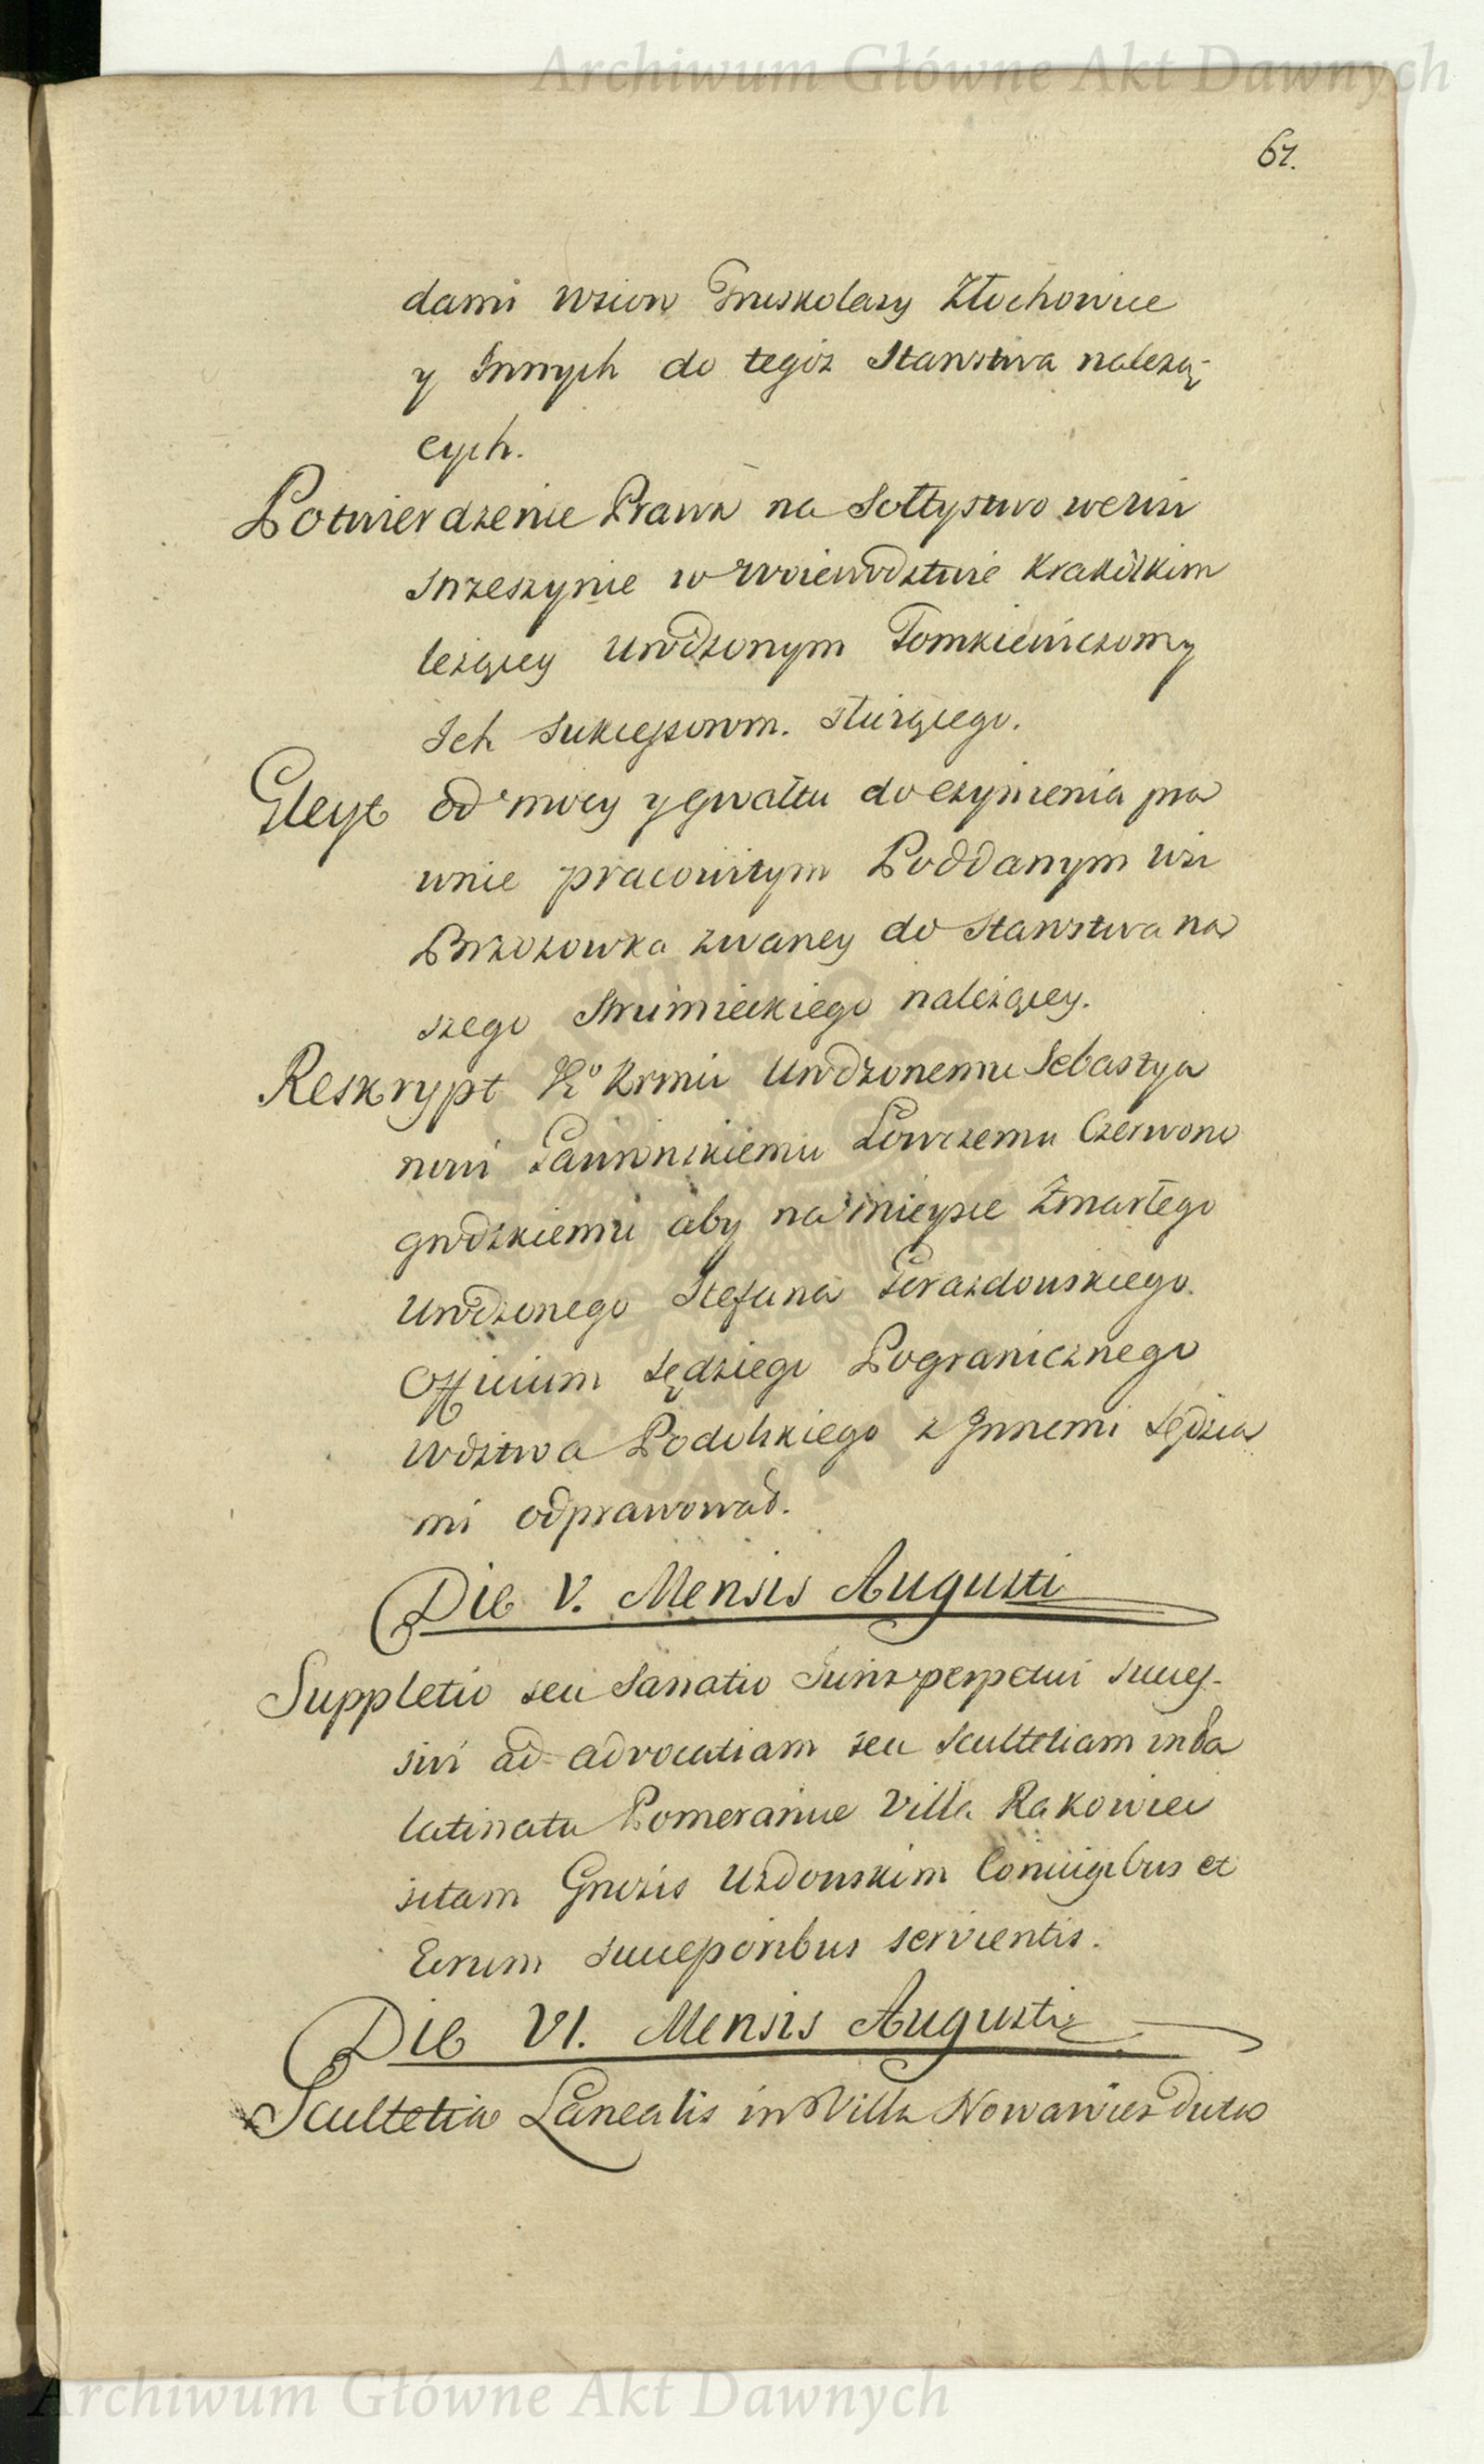 Archiwum Główne Akt Dawnych
67.
dami wsiow Truskolasy Złochowice
y Innych do tegoz Starostwa nalezą-
cych.
Potwierdzenie Prawa na Sołtystwo we wsi
Strzeszynie w Woiewodztwie Krakowskim
leżącey Urodzonym Tomkiewiczowi y
Ich Sukcessorom. służącego.
Gleyt od mocy y gwałtu do czynienia pra
wnie pracowitym Poddanym wsi
Brzozowka zwaney do Starostwa na
szego Strumieckiego należącey.
Reskrypt Ko Krmci Urodzonemu Sebastya
nowi Łowczemu Czerwono
grodzkiemu aby na mieysce Zmarłego
Urodzonego Stefana
Officium Sędziego Pogranicznego
Wdztwa Podolskiego z Innemi Sędzia
mi odprawował.
Die V. Mensis Augusti
Suppletio seu Sanatio Juris perpetui Succes-
sivi ad advocatiam seu Scultetiam in Pa
latinatu Pomeraniae Villa Rakowiec
sitam Grosis Uzdowskim Coniugibus et
Eorum Successoribus servientis.
Die VI. Mensis Augusti
Scultetia Lanealis in Villa Nowawies dicta
Archiwum Główne Akt Dawnych